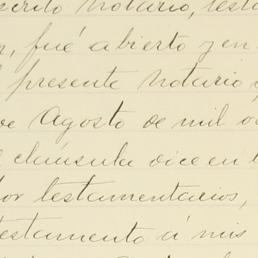 scrito notario, testa
, fué abierto y en
presente notario
de Agosto de mil o
cláusula dice en
por testamentarios,
testamento á mis